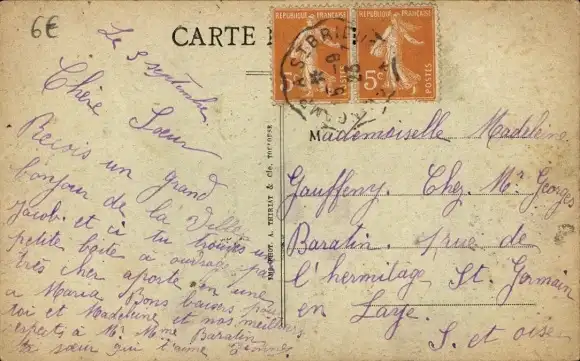 6€
CARTE
REPUBLIQUE FRANÇAISE
REPUBLIQUE FRANÇAISE
5c
5c
POSTES
Le 5 septembre
Chère Sœur
Reçois un grand
bonjour de la Ville
Jacob. et ci tu trouves une
petite boite à ouvrage pas
très cher aporte en une
a Maria Bons baisers pour
toi et Madeleine et nos meilleurs
respects à Mr Mme Baratin
Ta sœur qui t'aime
IMP. PHOT. A. THIRIAT & Cie, TOULOUSE
Mademoiselle Madeleine
Gauffeny. Chez. Mr Georges
Baratin. rue de
l'hermitage St. Germain
en Laye.
S. et oise